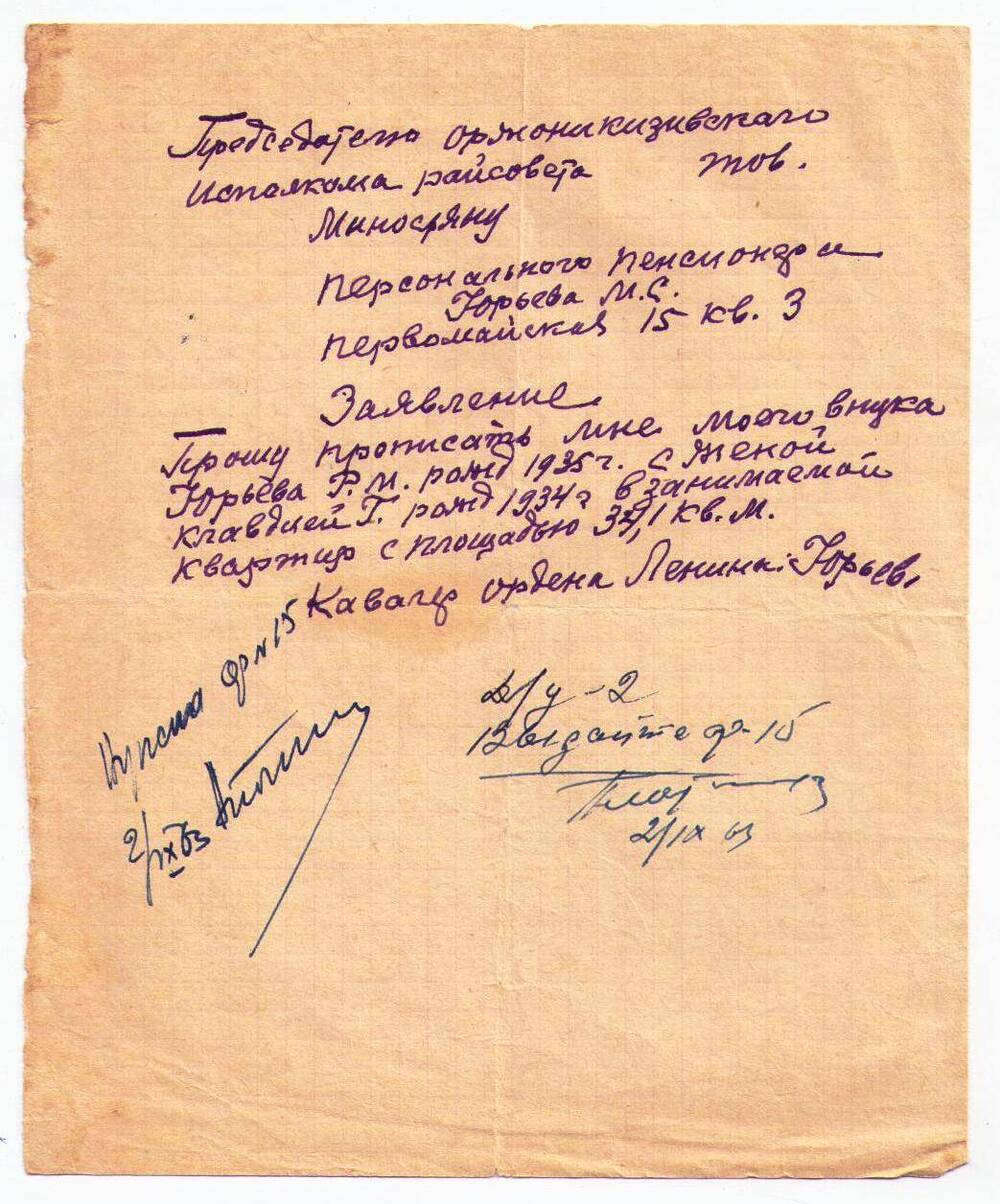 Председателю оржоникизивскаго
Исполкома райсовета тов.
Миносяну
персонального пенсионера
Юрьева М.С.
первомайская 15 кв. 3
Заявление
Прошу прописать мне моего внука
Юрьева Р.М. рожд 1935 г. с женой
клавдией Г. рожд 1934 г в занимаемой
квартир с площадью кв. м.
Кавалер ордена Ленина: Юрьев
ф № 15
2/IX 63
Д/у - 2
Выдайте ф. 15
2/IX 63